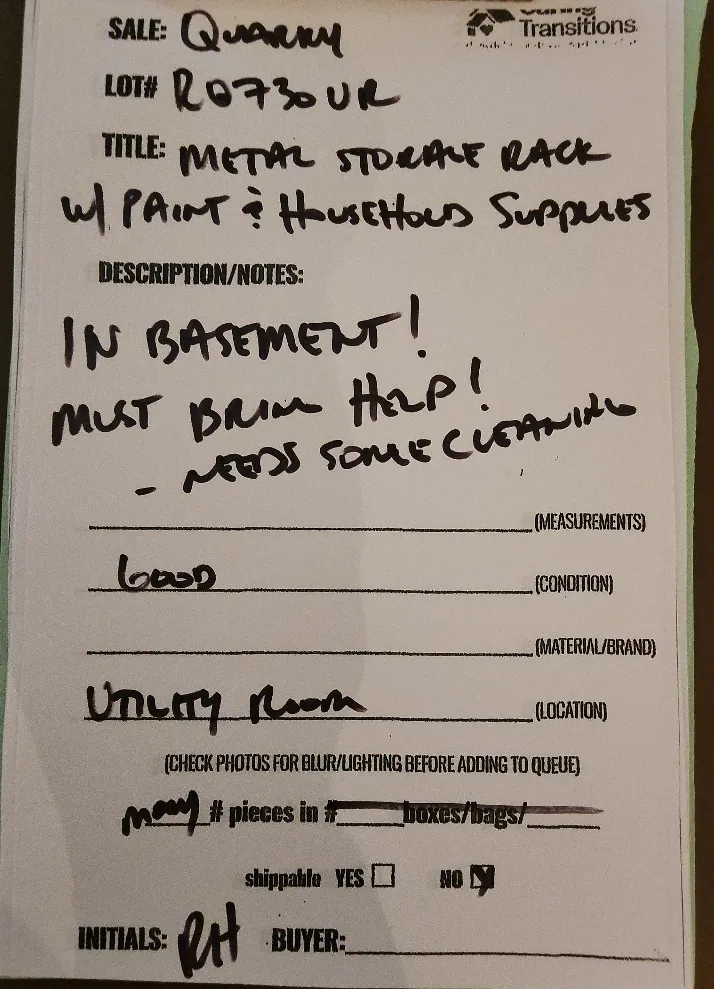 SALE: QUARRY
Transitions
LOT# R0730UR
TITLE: METAL STORAGE RACK
W/ PAINT & HOUSEHOLD SUPPLIES
DESCRIPTION/NOTES:
IN BASEMENT!
MUST BRING HELP!
- NEEDS SOME CLEANING
(MEASUREMENTS)
GOOD (CONDITION)
(MATERIAL/BRAND)
UTILITY ROOM (LOCATION)
(CHECK PHOTOS FOR BLUR/LIGHTING BEFORE ADDING TO QUEUE)
many # pieces in #____boxes/bags/____
shippable YES NO
INITIALS: RH BUYER: